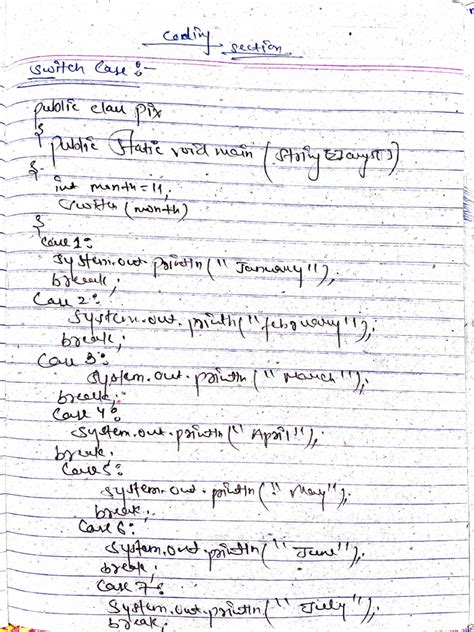 coding section
Switch Case :-
public class pix
{
public static void main (String [] args[])
{
int month = 11;
switch (month)
{
Case 1:
System.out.println("January");
break;
Case 2:
System.out.println("february");
break;
Case 3:
System.out.println("March");
break;
Case 4:
System.out.println("April");
break;
Case 5:
System.out.println("May");
break;
Case 6:
System.out.println("June");
break;
Case 7:
System.out.println("July");
break;